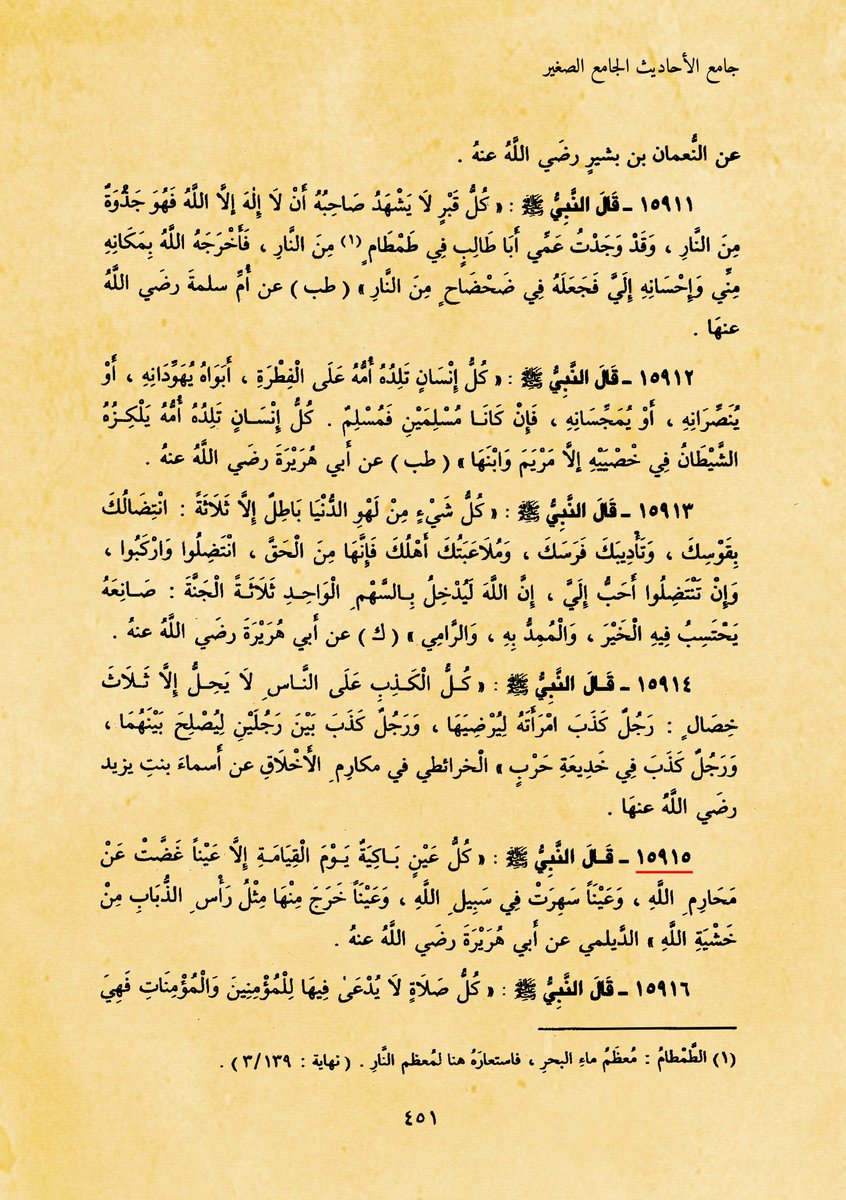 جامع الأحاديث الجامع الصغير
عن النُّعمان بن بشيرٍ رضَي اللَّهُ عنهُ .
١٥٩١١ ـ قَالَ النَّبِيُّ ﷺ : « كُلُّ قَبْرٍ لَا يَشْهَدُ صَاحِبُهُ أَنْ لَا إِلٰهَ إلَّا اللَّهُ فَهُوَ جَذْوَةٌ
مِنَ النَّارِ ، وَقَدْ وَجَدْتُ عَمِّي أَبَا طَالِبٍ فِي طَمْطَامٍ (١) مِنَ النَّارِ ، فَأَخْرَجَهُ اللَّهُ بِمَكَانِهِ
مِنِّي وَإِحْسَانِهِ إِلَيَّ فَجَعَلَهُ فِي ضَحْضَاحٍ مِنَ النَّارِ » ( طب ) عن أُمِّ سلمةَ رضَي اللَّهُ
عنهَا .
١٥٩١٢ ـ قَالَ النَّبِيُّ ﷺ : « كُلُّ إِنْسَانٍ تَلِدُهُ أُمُّهُ عَلَى الْفِطْرَةِ ، أَبَوَاهُ يُهَوِّدَانِهِ ، أَوْ
يُنَصِّرَانِهِ ، أَوْ يُمَجِّسَانِهِ ، فَإِنْ كَانَا مُسْلِمَيْنِ فَمُسْلِمٌ . كُلُّ إِنْسَانٍ تَلِدُهُ أُمُّهُ يَلْكِزُهُ
الشَّيْطَانُ فِي خُصْيَيْهِ إلَّا مَرْيَمَ وَابْنَهَا » ( طب ) عن أَبي هُرَيْرَةَ رضَي اللَّهُ عنهُ .
١٥٩١٣ ـ قَالَ النَّبِيُّ ﷺ : « كُلُّ شَيْءٍ مِنْ لَهْوِ الدُّنْيَا بَاطِلٌ إِلَّا ثَلَاثَةً : انْتِضَالُكَ
بِقَوْسِكَ ، وَتَأْدِيبَكَ فَرَسَكَ ، وَمُلَاعَبَتُكَ أَهْلُكَ فَإِنَّهَا مِنَ الْحَقِّ ، انْتَضِلُوا وَارْكَبُوا ،
وَإِنْ تَنْتَضِلُوا أَحَبُّ إِلَيَّ ، إِنَّ اللَّهَ لَيُدْخِلُ بِالسَّهْمِ الْوَاحِدِ ثَلَاثَةً الْجَنَّةَ : صَانِعَهُ
يَحْتَسِبُ فِيهِ الْخَيْرَ ، وَالْمُمِدُّ بِهِ ، وَالرَّامِي » ( ك ) عن أَبي هُرَيْرَةَ رضَي اللَّهُ عنهُ .
١٥٩١٤ ـ قَالَ النَّبِيُّ ﷺ : « كُلُّ الْكَذِبِ عَلَى النَّاسِ لَا يَحِلُّ إِلَّا ثَلَاثَ
خِصَالٍ : رَجُلٌ كَذَبَ امْرَأَتَهُ لِيُرْضِيَهَا ، وَرَجُلٌ كَذَبَ بَيْنَ رَجُلَيْنِ لِيُصْلِحَ بَيْنَهُمَا ،
وَرَجُلٌ كَذَبَ فِي خَدِيعَةِ حَرْبٍ » الْخرائطي في مكارِمِ الأَخْلَاقِ عن أَسماءَ بنتِ يزيد
رضَي اللَّهُ عنهَا .
١٥٩١٥ ـ قَالَ النَّبِيُّ ﷺ : « كُلُّ عَيْنٍ بَاكِيَةٌ يَوْمَ الْقِيَامَةِ إِلَّا عَيْناً غَضَّتْ عَنْ
مَحَارِمِ اللَّهِ ، وَعَيْنَاً سَهِرَتْ فِي سَبِيلِ اللَّهِ ، وَعَيْنَاً خَرَجَ مِنْهَا مِثْلُ رَأْسِ الذُّبَابِ مِنْ
خَشْيَةِ اللَّهِ » الدَّيلمي عن أَبي هُرَيْرَةَ رضَي اللَّهُ عنهُ .
١٥٩١٦ ـ قَالَ النَّبِيُّ ﷺ : « كُلُّ صَلَاةٍ لَا يُدْعَىٰ فِيهَا لِلْمُؤْمِنِينَ وَالْمُؤْمِنَاتِ فَهِيَ
(١) الطَّمْطامُ : مُعظَمُ ماءِ البحرِ ، فاستعارَهُ هنا لمُعظمِ النَّارِ . ( نهاية : ٣/١٣٩ ) .
٤٥١